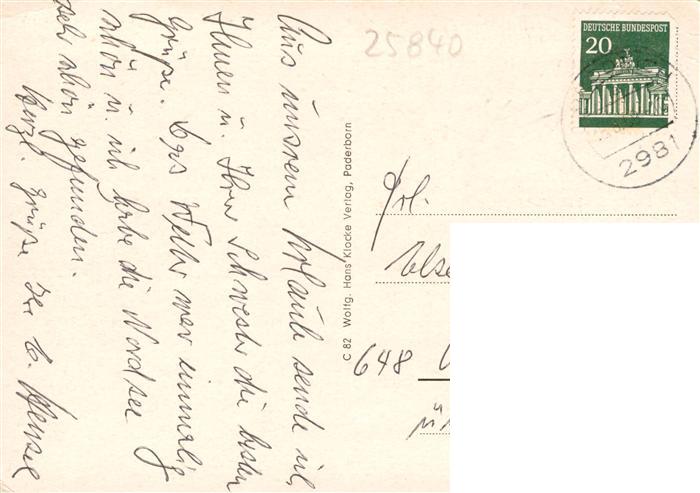 Aus unserem Urlaub sende ich
Ihnen u. Ihrer Schwester die besten
Grüße. Das Wetter war einmalig
schön u. ich habe die Nordsee
sehr schön gefunden.
Herzl. Grüße Ihr
25840
DEUTSCHE BUNDESPOST
20
2981
C 82 Wolfg. Hans Klocke Verlag, Paderborn
Frl.
Else
648